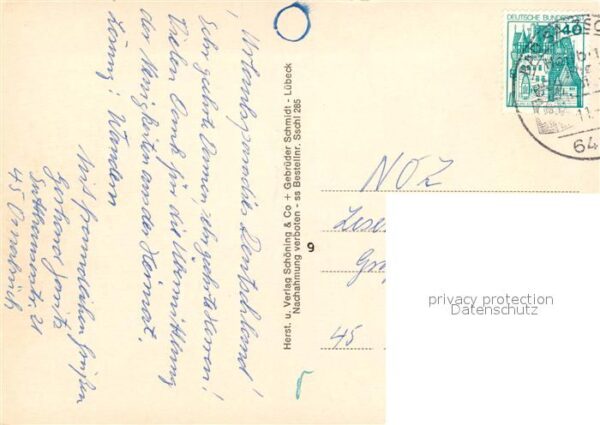 Urlaubsparadies Deutschland!
Sehr geehrte Damen, sehr geehrte Herren!
Vielen Dank für die Übermittlung
der Neuigkeiten aus der Heimat.
Mit freundlichen Grüßen
Gerhard
21
45 Osnabrück
Herst. u. Verlag Schöning & Co + Gebrüder Schmidt - Lübeck
Nachahmung verboten - ss Bestellnr. Sschl 285
9
DEUTSCHE BUNDES
40
11.
64
NOZ
Lese
Gr
45
privacy protection
Datenschutz